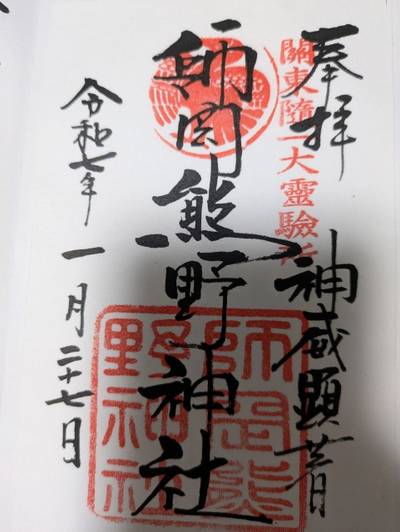 奉拝
關東隨一大靈驗所
神威顕
師岡熊野神社
師岡熊
野神社
令和七年一月二十七日